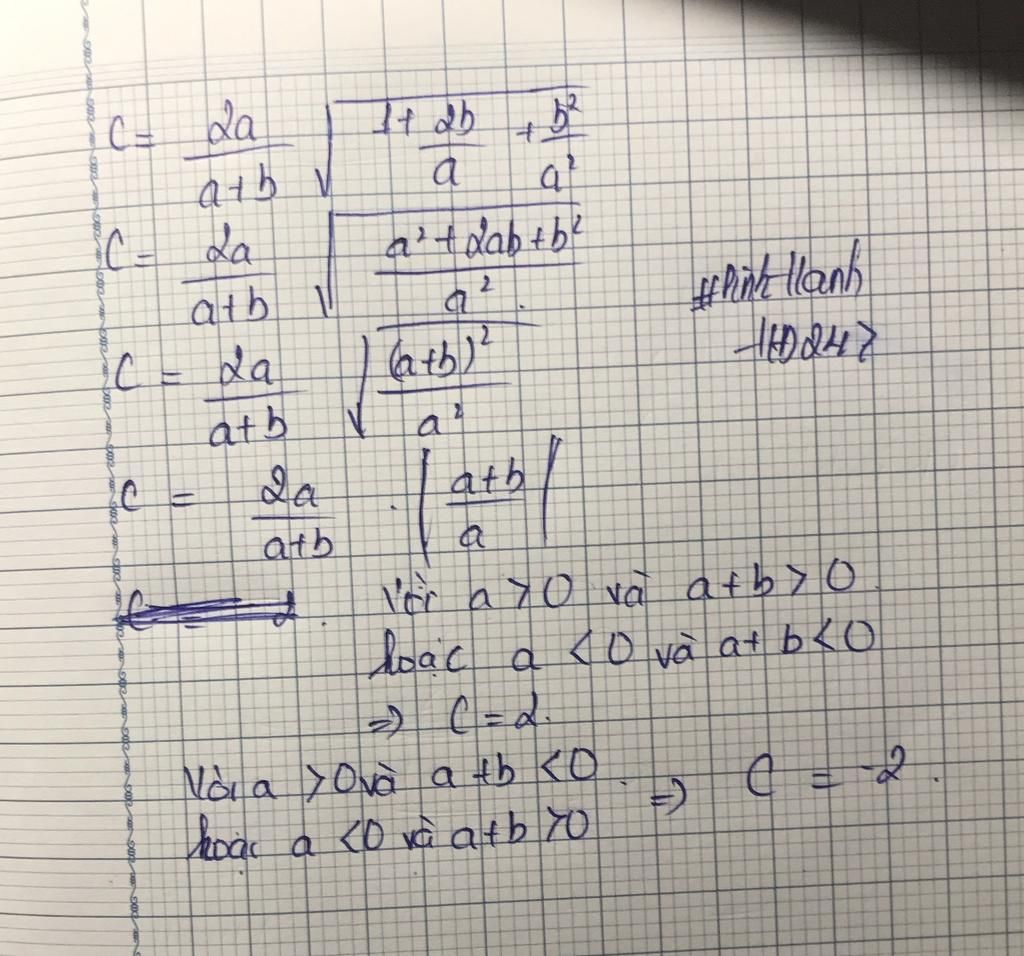 C = \frac{2a}{a+b} \sqrt{1 + \frac{2b}{a} + \frac{b^2}{a^2}}
C = \frac{2a}{a+b} \sqrt{\frac{a^2+2ab+b^2}{a^2}}
C = \frac{2a}{a+b} \sqrt{\frac{(a+b)^2}{a^2}}
C = \frac{2a}{a+b} . \left| \frac{a+b}{a} \right|
Với a > 0 và a+b > 0
hoặc a < 0 và a+b < 0
=> C = 2.
Với a > 0 và a+b < 0 . => C = -2 .
hoặc a < 0 và a+b > 0
HD247